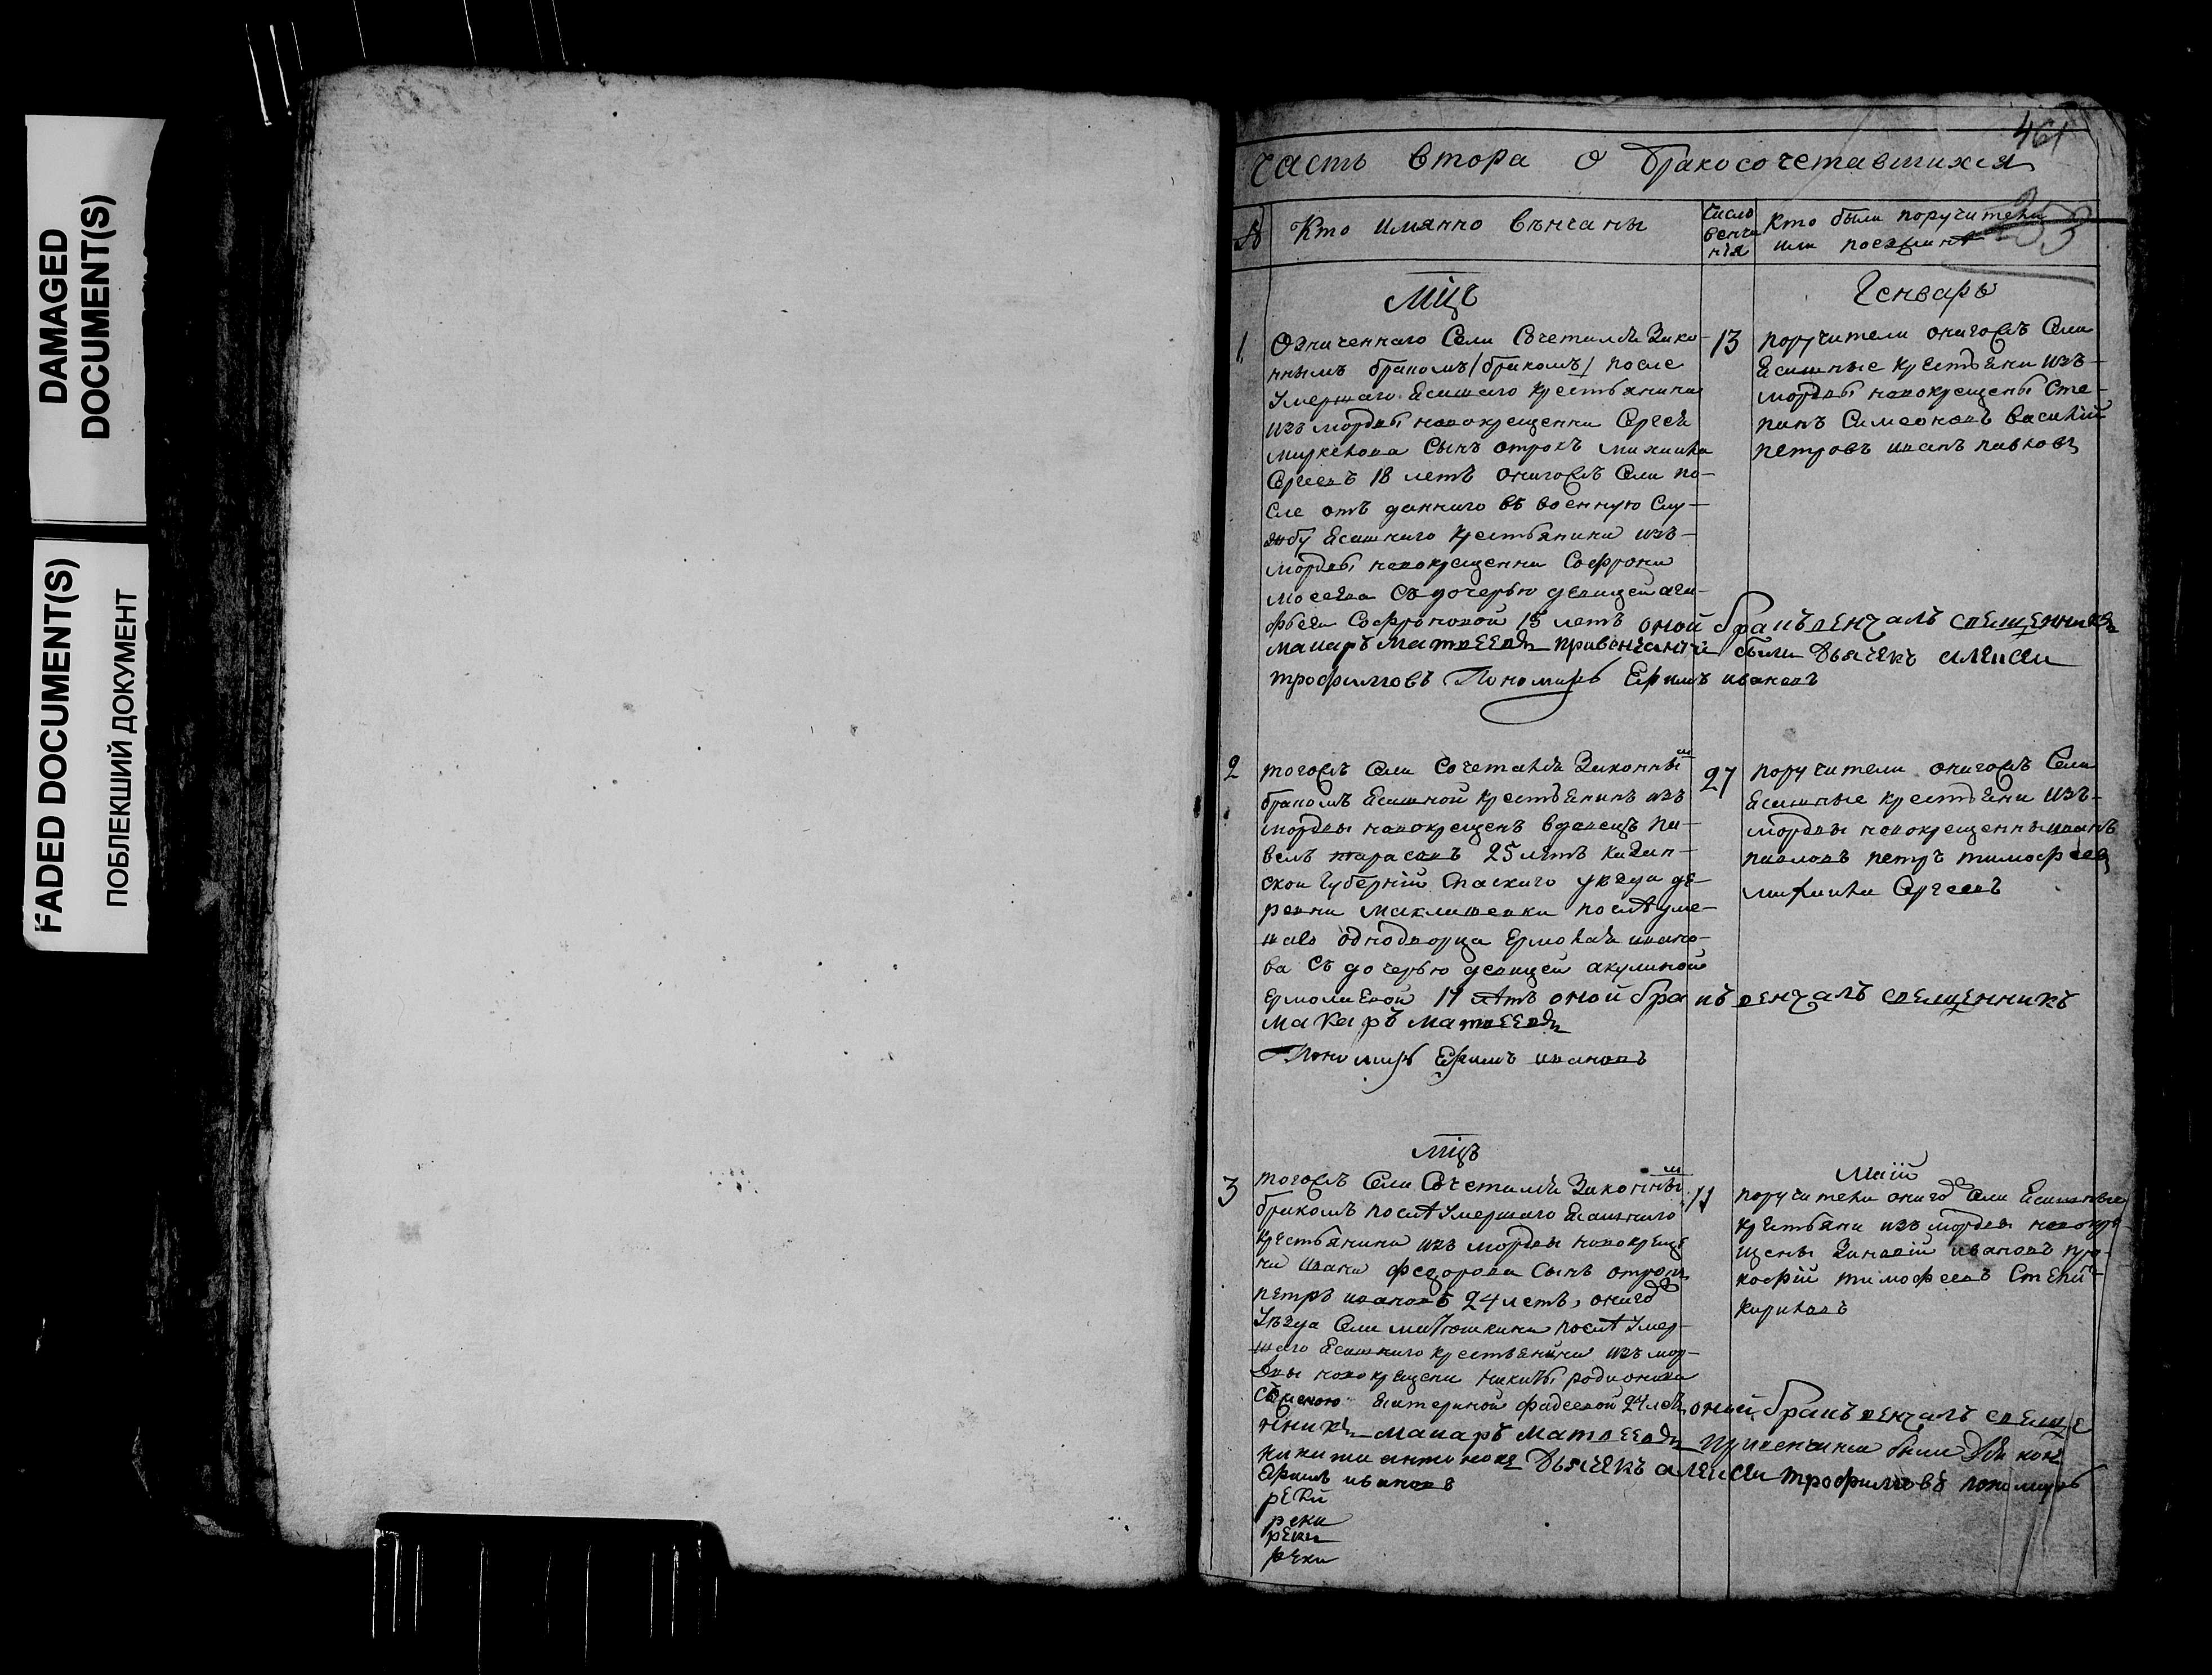 DAMAGED
DOCUMENT(S)
FADED DOCUMENT(S)
ПОБЛЕКШИЙ ДОКУМЕНТ
461
Часть втора о бракосочетавшихся
№
Кто имянно венчаны
число венчания
Кто были поручители или поезжина
253
Мцъ
Генварь
1
Означеннаго села сочетался зако-
ннымъ бракомъ /бракомъ/ после
умершаго ясашнаго крестьянина
изъ мордвы новокрещенна Сергея
сынъ отрокъ Михаила
Сергеевъ 18 летъ оногожъ села по-
сле отъ даннаго въ военную слу-
жбу ясашнаго крестьянина изъ
мордвы новокрещенна Софрона
Мосеева съ дочерью девицей Ага-
фьеи Софроновой 15 летъ оной бракъ венчалъ священникъ
Макаръ Матвеевъ привенчании были дьячекъ Алексеи
Трофимовъ Пономарь Ефимъ Ивановъ
13
поручители оногожъ села
ясашные крестьяни изъ
мордвы новокрещены Сте-
панъ Симеоновъ Василий
Петровъ Иванъ Павловъ
2
тогожъ села сочетался законны м
бракомъ ясашной крестьянинъ изъ
мордвы новокрещенъ вдовецъ Па-
велъ Тарасовъ 25 летъ Казан-
скои губернии Спаскаго уезда де-
ревни после уме-
шаго однодворца Ермолая Ивано-
ва съ дочерью девицей Акулиной
Ермолаевой 17 летъ оной бракъ венчалъ священникъ
Макаръ Матвеевъ
Пономарь Ефимъ Ивановъ
27
поручители оногожъ села
ясашные крестьяни изъ
мордвы новокрещенны Иванъ
Павловъ Петръ Тимофеевъ
Михаила Сергеевъ
Мцъ
Маий
3
тогожъ села сочетался законны м
бракомъ после умершаго ясашнаго
крестьянина изъ мордвы новокреще
на Ивана Федорова сынъ отрокъ
Петръ Ивановъ 24 летъ, оногожъ
уезда села Матюшкина после умер-
шаго ясашнаго крестьянина изъ мор-
двы новокрещена Никиты Родионова
съ женою Екатериной Фадеевой 24 летъ оный бракъ венчалъ свяще
нникъ Макаръ Матвеевъ привенчании были
Никита Антонове дьячекъ Алексеи Трофимовъ пономарь
Ефимъ Ивановъ
реки
реки
реки
реки
11
поручители оногожъ села ясашные
крестьяни изъ мордвы новокре-
щены Иванов Про-
кофий Тимофеевъ Степа
Кириловъ